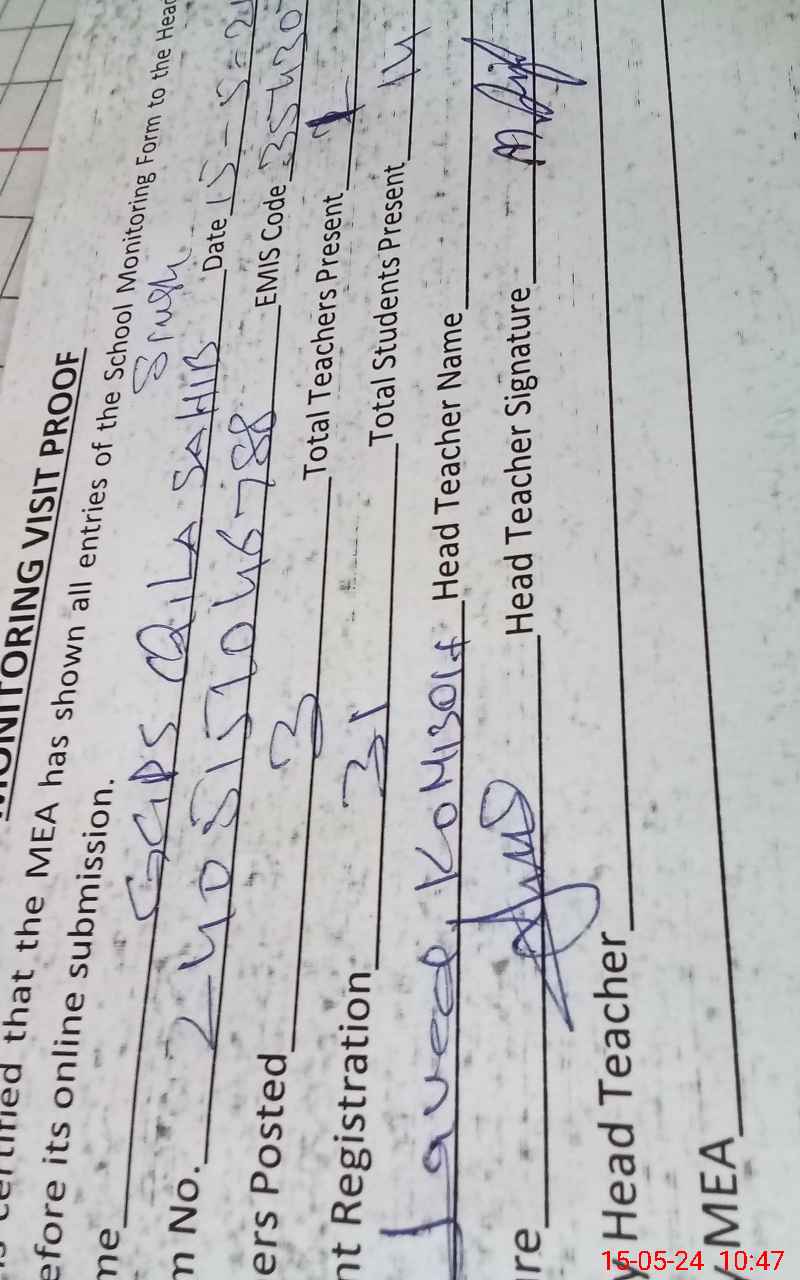 MONITORING VISIT PROOF
is certified that the MEA has shown all entries of the School Monitoring Form to the Head
efore its online submission.
me GGPS QILA SAHIB Date 15-5-24
m No. EMIS Code 35430
ers Posted 3 Total Teachers Present 1
nt Registration 31 Total Students Present 14
Javed Head Teacher Name
re Head Teacher Signature
y Head Teacher
MEA
15-05-24 10:47